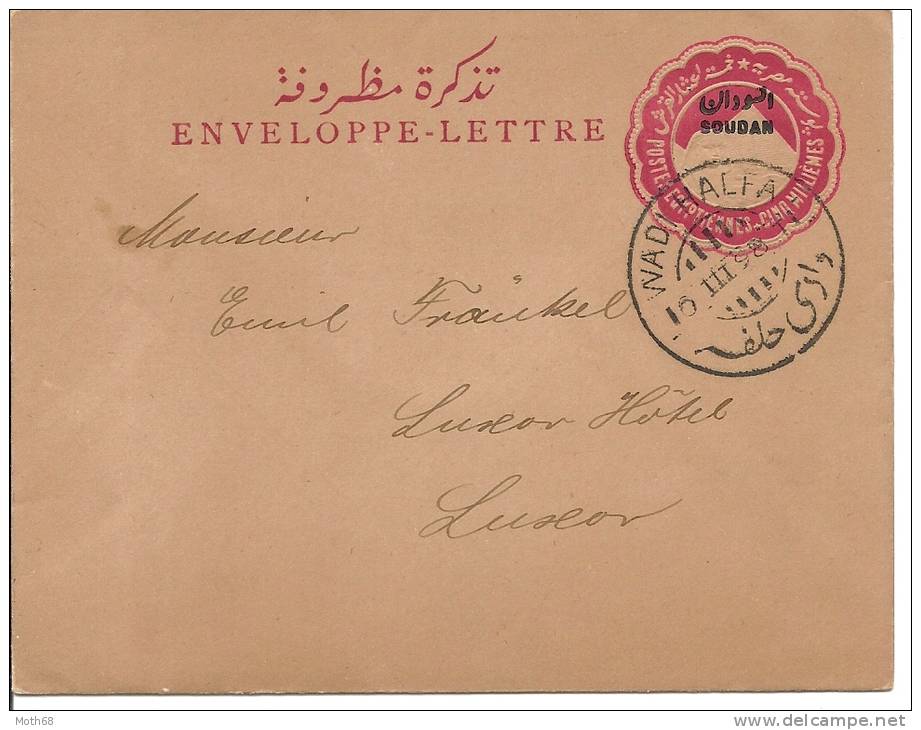 تذكرة مظروفة
ENVELOPPE-LETTRE
السودان
SOUDAN
POSTES EGYPTIENNES-CINQ MILLIÈMES
WADI HALFA
16 III 98
وادى حلفه
Monsieur
Emil Fränkel
Luxor Hôtel
Luxor
Moth68
www.delcampe.net